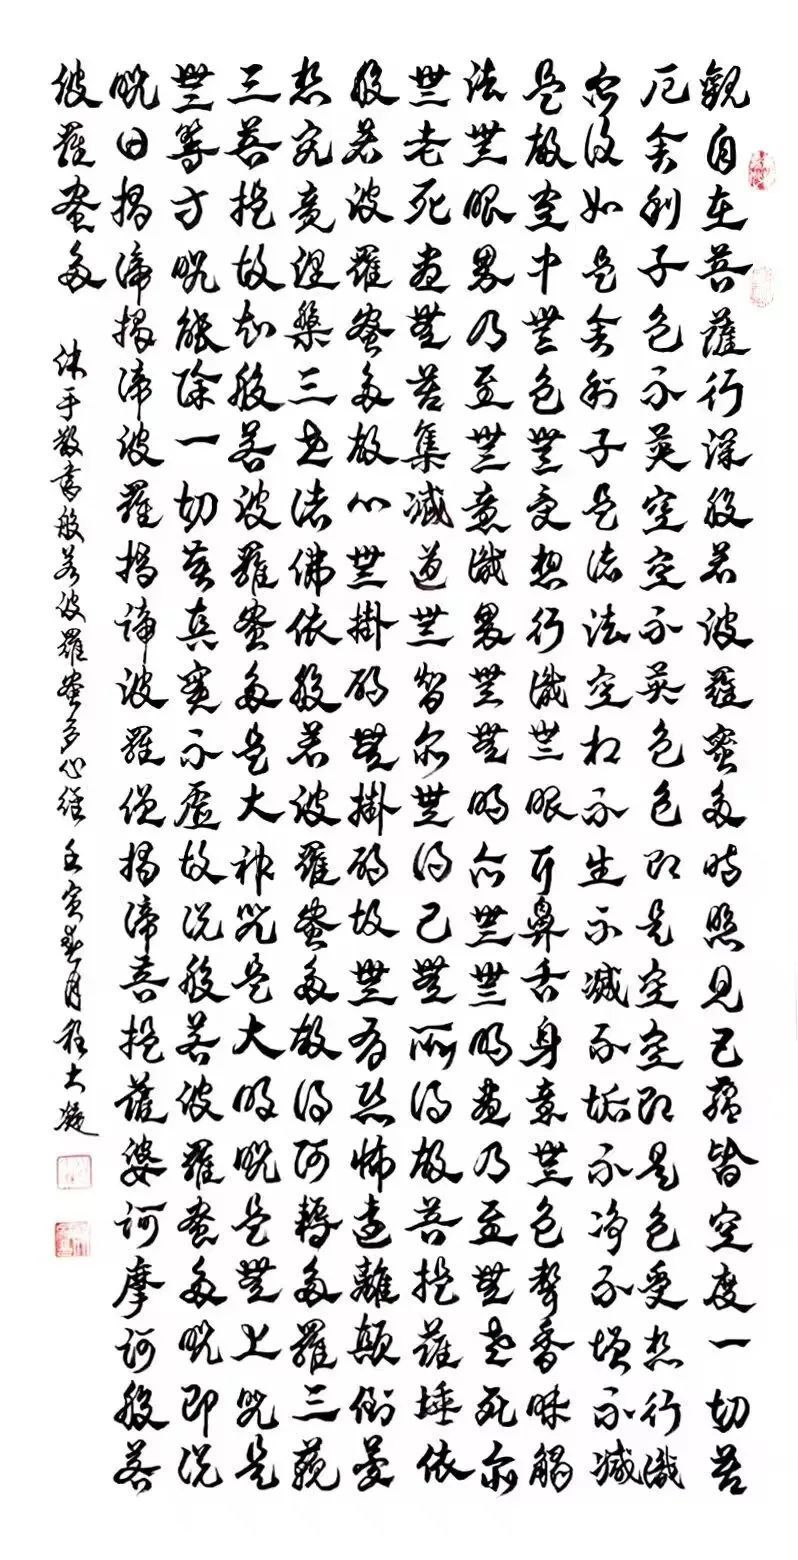 觀自在菩薩行深般若波羅蜜多時照見五蘊皆空度一切苦
厄舍利子色不異空空不異色色即是空空即是色受想行識
亦復如是舍利子是諸法空相不生不滅不垢不净不增不減
是故空中無色無受想行識無眼耳鼻舌身意無色聲香味觸
法無眼界乃至無意識界無無明亦無無明盡乃至無老死亦
無老死盡無苦集滅道無智亦無得已無所得故菩提薩埵依
般若波羅蜜多故心無掛礙無掛礙故無有恐怖遠離顛倒夢
想究竟涅槃三世諸佛依般若波羅蜜多故得阿耨多羅三藐
三菩提故知般若波羅蜜多是大神咒是大明咒是無上咒是
無等等咒能除一切苦真實不虛故說般若波羅蜜多咒即說
咒曰揭諦揭諦波羅揭諦波羅僧揭諦菩提薩婆訶摩訶般若
波羅蜜多
沐手敬書般若波羅蜜多心經 壬寅春月